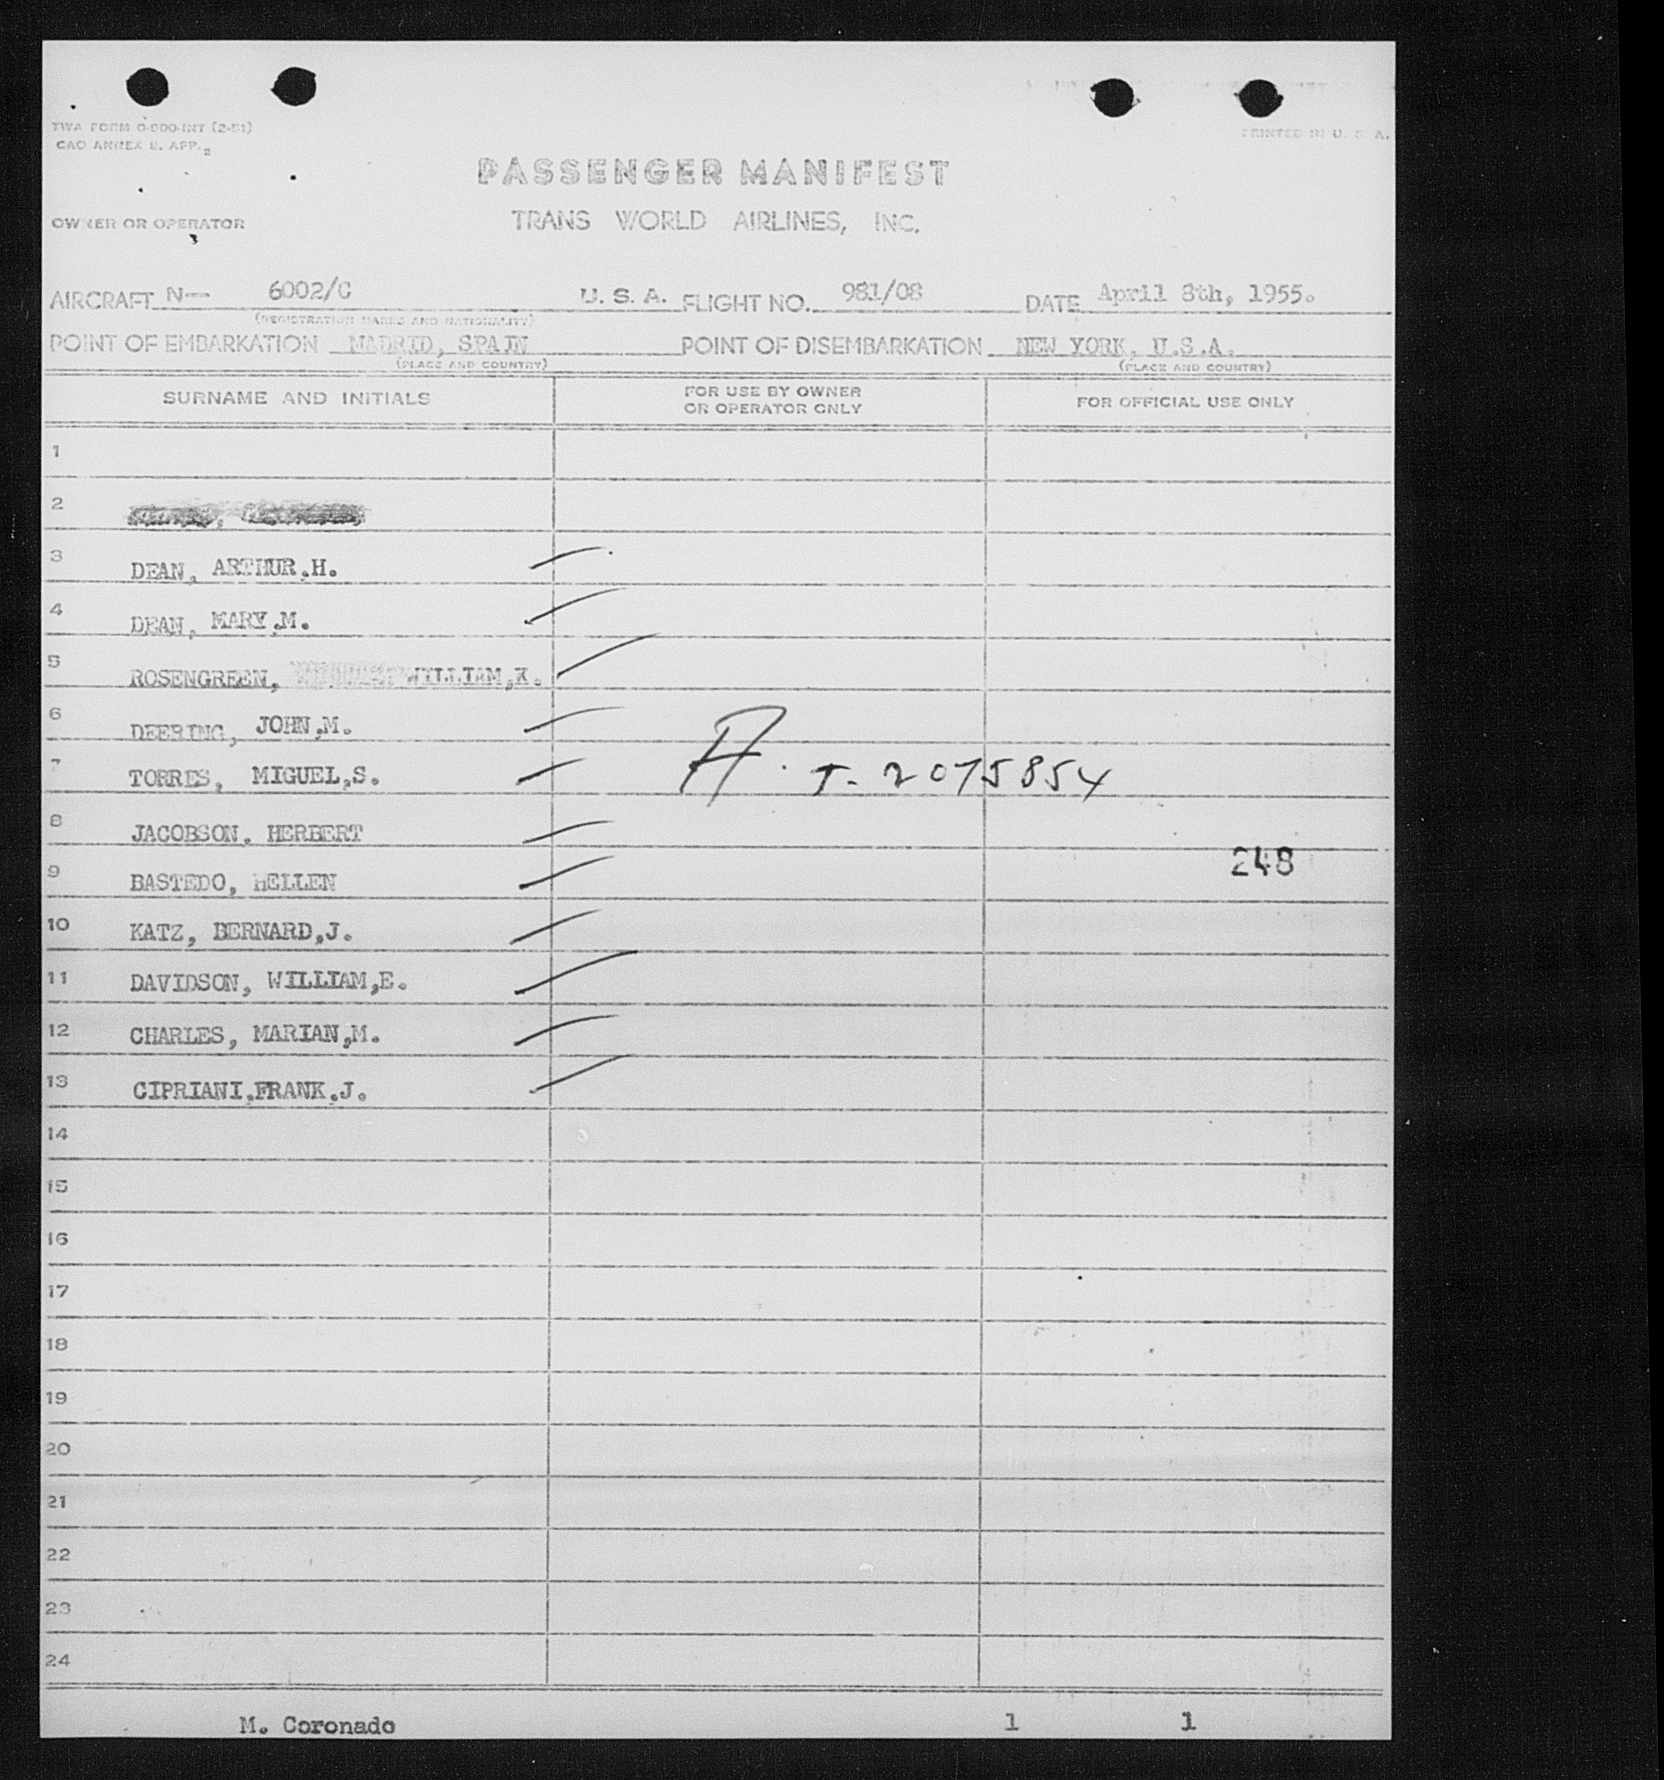 TWA FORM O-900-INT (2-51)
CAO ANNEX 9. APP. 2
PRINTED IN U. S. A.
PASSENGER MANIFEST
OWNER OR OPERATOR TRANS WORLD AIRLINES, INC.
AIRCRAFT N— 6002/C U. S. A. FLIGHT NO. 981/08 DATE April 8th, 1955.
(REGISTRATION MARKS AND NATIONALITY)
POINT OF EMBARKATION MADRID, SPAIN POINT OF DISEMBARKATION NEW YORK, U.S.A.
(PLACE AND COUNTRY) (PLACE AND COUNTRY)
SURNAME AND INITIALS FOR USE BY OWNER OR OPERATOR ONLY FOR OFFICIAL USE ONLY
1
2
3 DEAN, ARTHUR.H.
4 DEAN, MARY.M.
5 ROSENGREEN, WILLIAM,K.
6 DEERING, JOHN,M.
7 TORRES, MIGUEL,S. A. T- 2075854
8 JACOBSON. HERBERT
248
9 BASTEDO, HELLEN
10 KATZ, BERNARD,J.
11 DAVIDSON, WILLIAM,E.
12 CHARLES, MARIAN,M.
13 CIPRIANI.FRANK.J.
14
15
16
17
18
19
20
21
22
23
24
M. Coronado 1 1